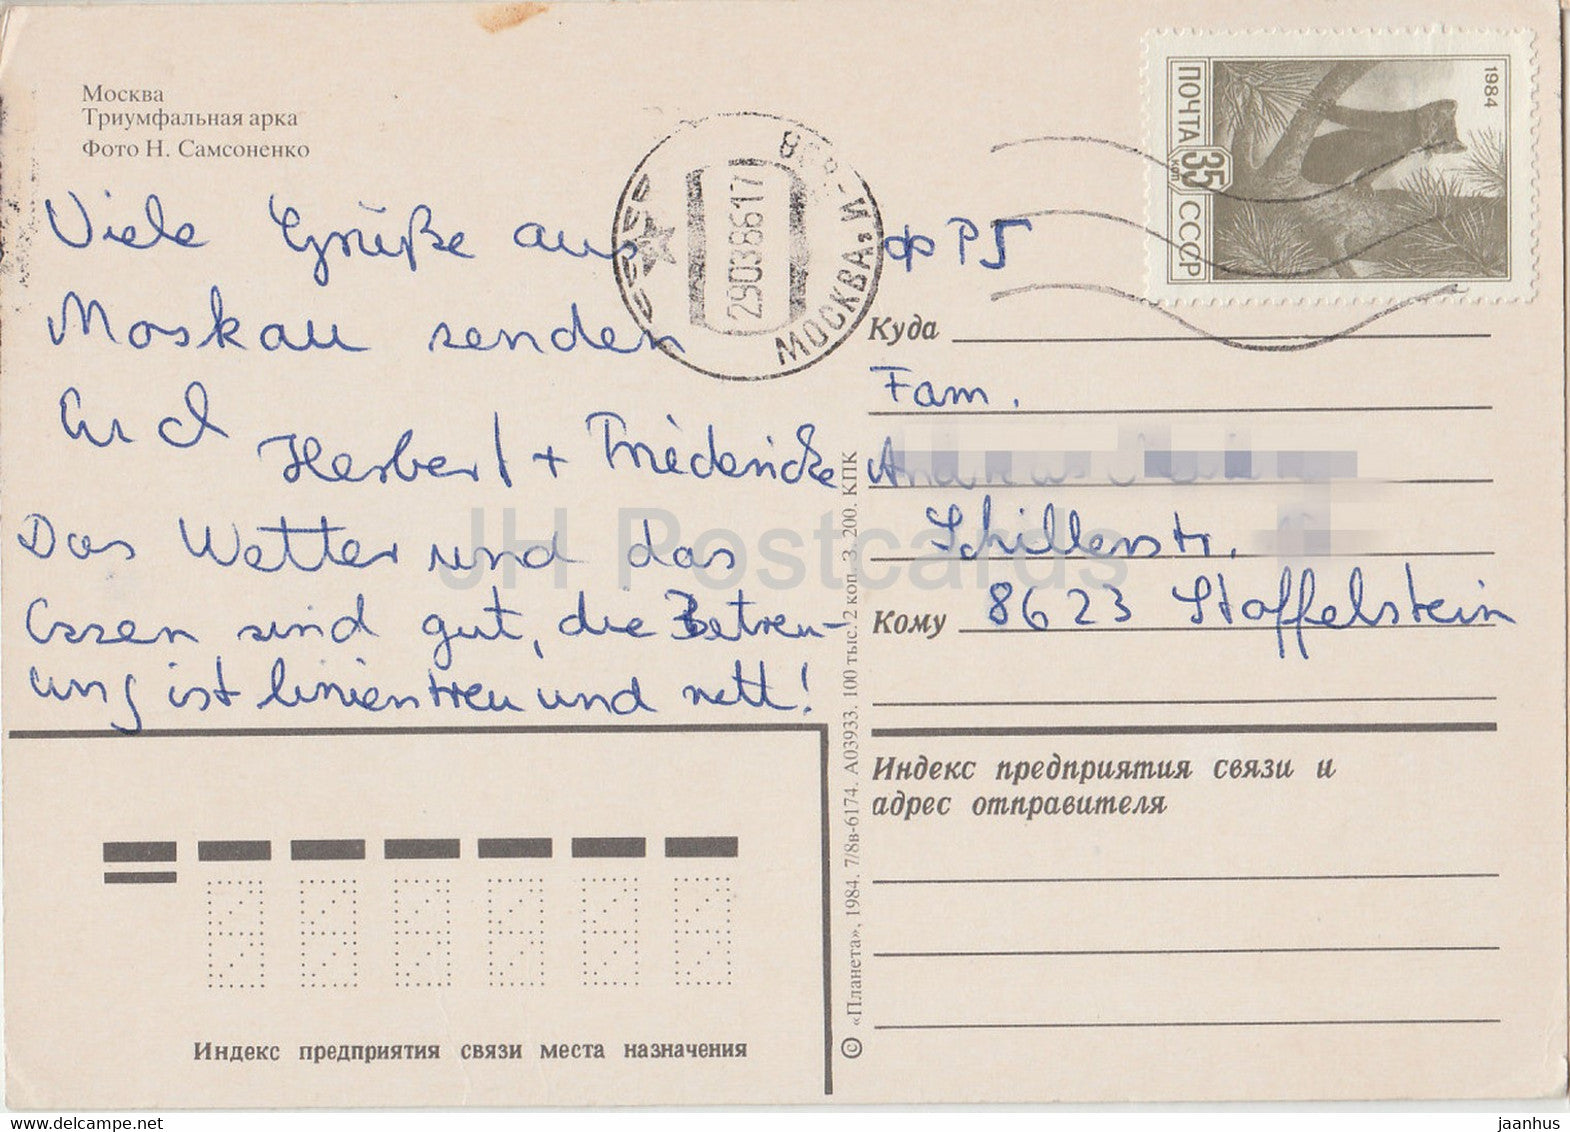 Москва
Триумфальная арка
Фото Н. Самсоненко
Viele Grüße aus
Moskau senden
Euch
Herbert + Friedericke
Das Wetter und das
Essen sind gut, die Betreu-
ung ist linientreu und nett!
МОСКВА
29038617
1984
ПОЧТА 35 коп СССР
ФРГ
Куда
Fam.
Schillerstr.
Кому 8623 Staffelstein
Индекс предприятия связи и
адрес отправителя
Индекс предприятия связи места назначения
© «Планета», 1984. 7/8в-6174. А03933. 100 тыс. 2 коп. З. 200. КПК
JH Postcards
www.delcampe.net
jaanhus